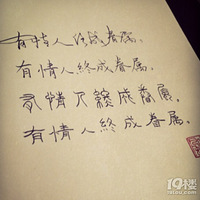 有情人终成眷属。
有情人終成眷属。
有情人終成眷属。
有情人終成眷属。
19楼